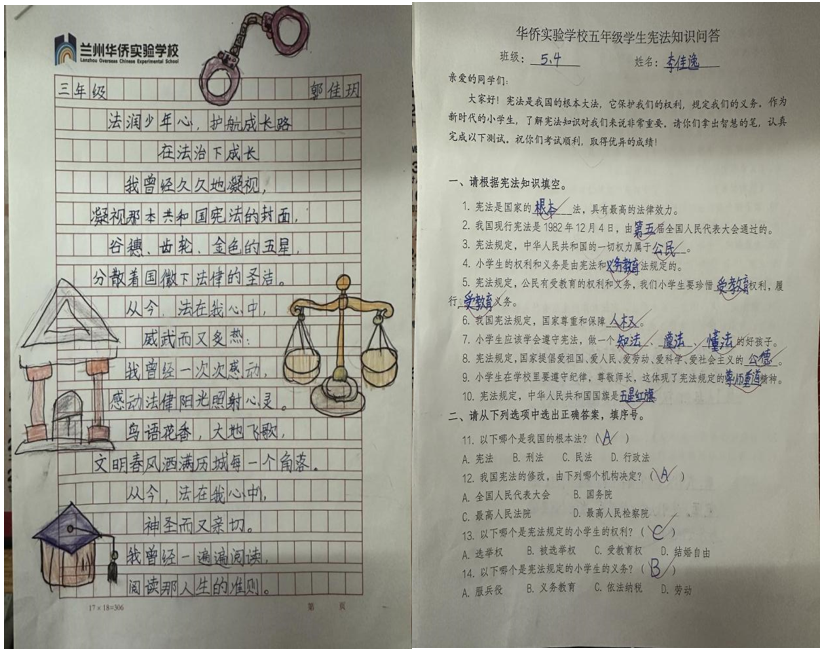 兰州华侨实验学校
Lanzhou Overseas Chinese Experimental School
三年级 郭佳玥
法润少年心,护航成长路
在法治下成长
我曾经久久地凝视,
凝视那本共和国宪法的封面,
谷穗、齿轮、金色的五星,
分散着国徽下法律的圣洁。
从今,法在我心中,
威武而又炙热;
我曾经一次次感动,
感动法律阳光照射心灵。
鸟语花香,大地飞歌,
文明春风洒满历城每一个角落。
从今,法在我心中,
神圣而又亲切。
我曾经一遍遍阅读,
阅读那人生的准则。
17×18=306 第 页
华侨实验学校五年级学生宪法知识问答
班级: 5.4 姓名: 李佳逸
亲爱的同学们:
大家好!宪法是我国的根本大法,它保护我们的权利,规定我们的义务。作为
新时代的小学生,了解宪法知识对我们来说非常重要。请你们拿出智慧的笔,认真
完成以下测试。祝你们考试顺利,取得优异的成绩!
一、请根据宪法知识填空。
1. 宪法是国家的 根本 法,具有最高的法律效力。
2. 我国现行宪法是 1982 年 12 月 4 日,由第五届全国人民代表大会通过的。
3. 宪法规定,中华人民共和国的一切权力属于 公民 。
4. 小学生的权利和义务是由宪法和义务教育法规定的。
5. 宪法规定,公民有受教育的权利和义务,我们小学生要珍惜 受教育 权利,履
行 受教育 义务。
6. 我国宪法规定,国家尊重和保障 人权 。
7. 小学生应该学会遵守宪法,做一个 知法 、 遵法 、 懂法 的好孩子。
8. 宪法规定,国家提倡爱祖国、爱人民、爱劳动、爱科学、爱社会主义的 公德 。
9. 小学生在学校里要遵守纪律,尊敬师长,这体现了宪法规定的尊师重道精神。
10. 宪法规定,中华人民共和国国旗是五星红旗
二、请从下列选项中选出正确答案,填序号。
11. 以下哪个是我国的根本法?( A )
A. 宪法 B. 刑法 C. 民法 D. 行政法
12. 我国宪法的修改,由下列哪个机构决定?( A )
A. 全国人民代表大会 B. 国务院
C. 最高人民法院 D. 最高人民检察院
13. 以下哪个是宪法规定的小学生的权利?( C )
A. 选举权 B. 被选举权 C. 受教育权 D. 结婚自由
14. 以下哪个是宪法规定的小学生的义务?( B )
A. 服兵役 B. 义务教育 C. 依法纳税 D. 劳动